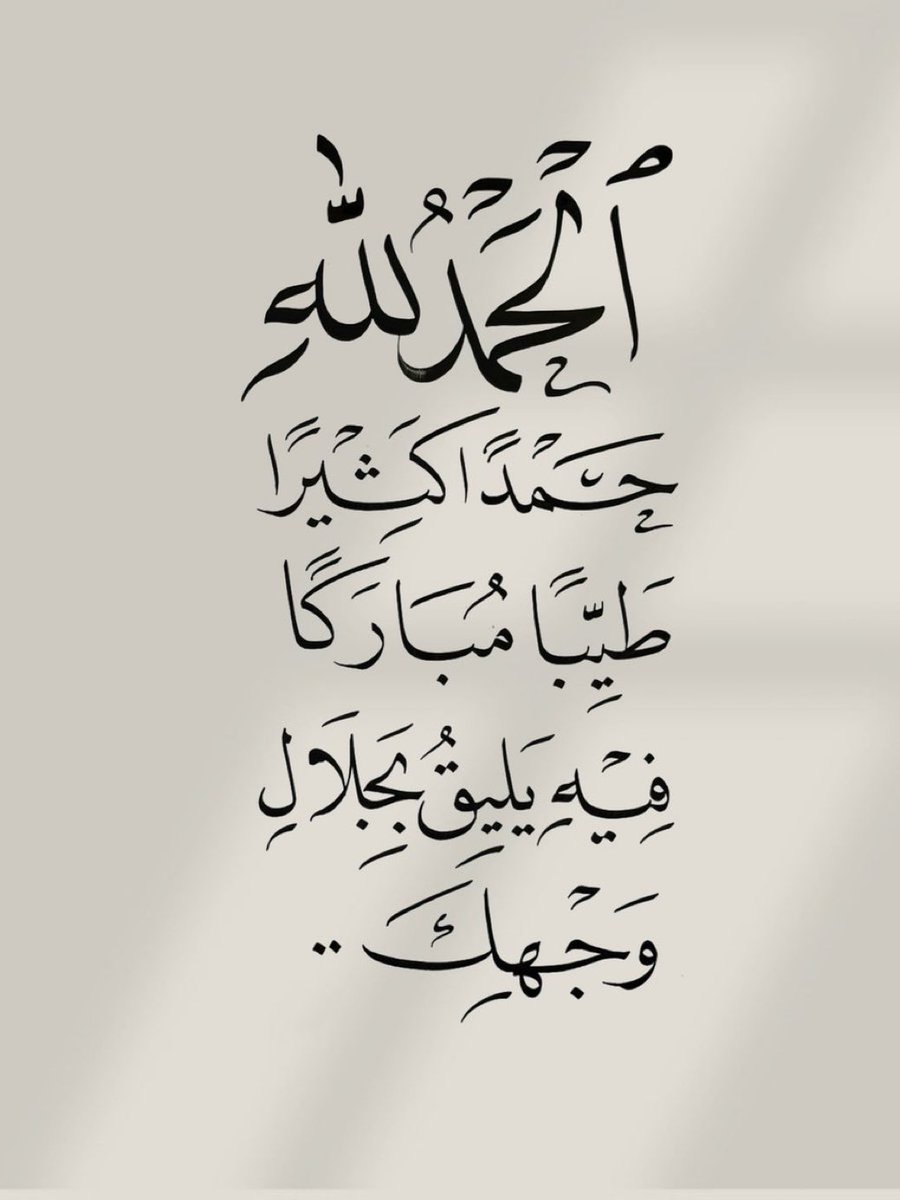 ٱلْحَمْدُ لِلّٰهِ
حَمْدًا كَثِيْرًا
طَيِّبًا مُبَارَكًا
فِيْهِ يَلِيقُ بِجَلَالِ
وَجْهِكَ ..